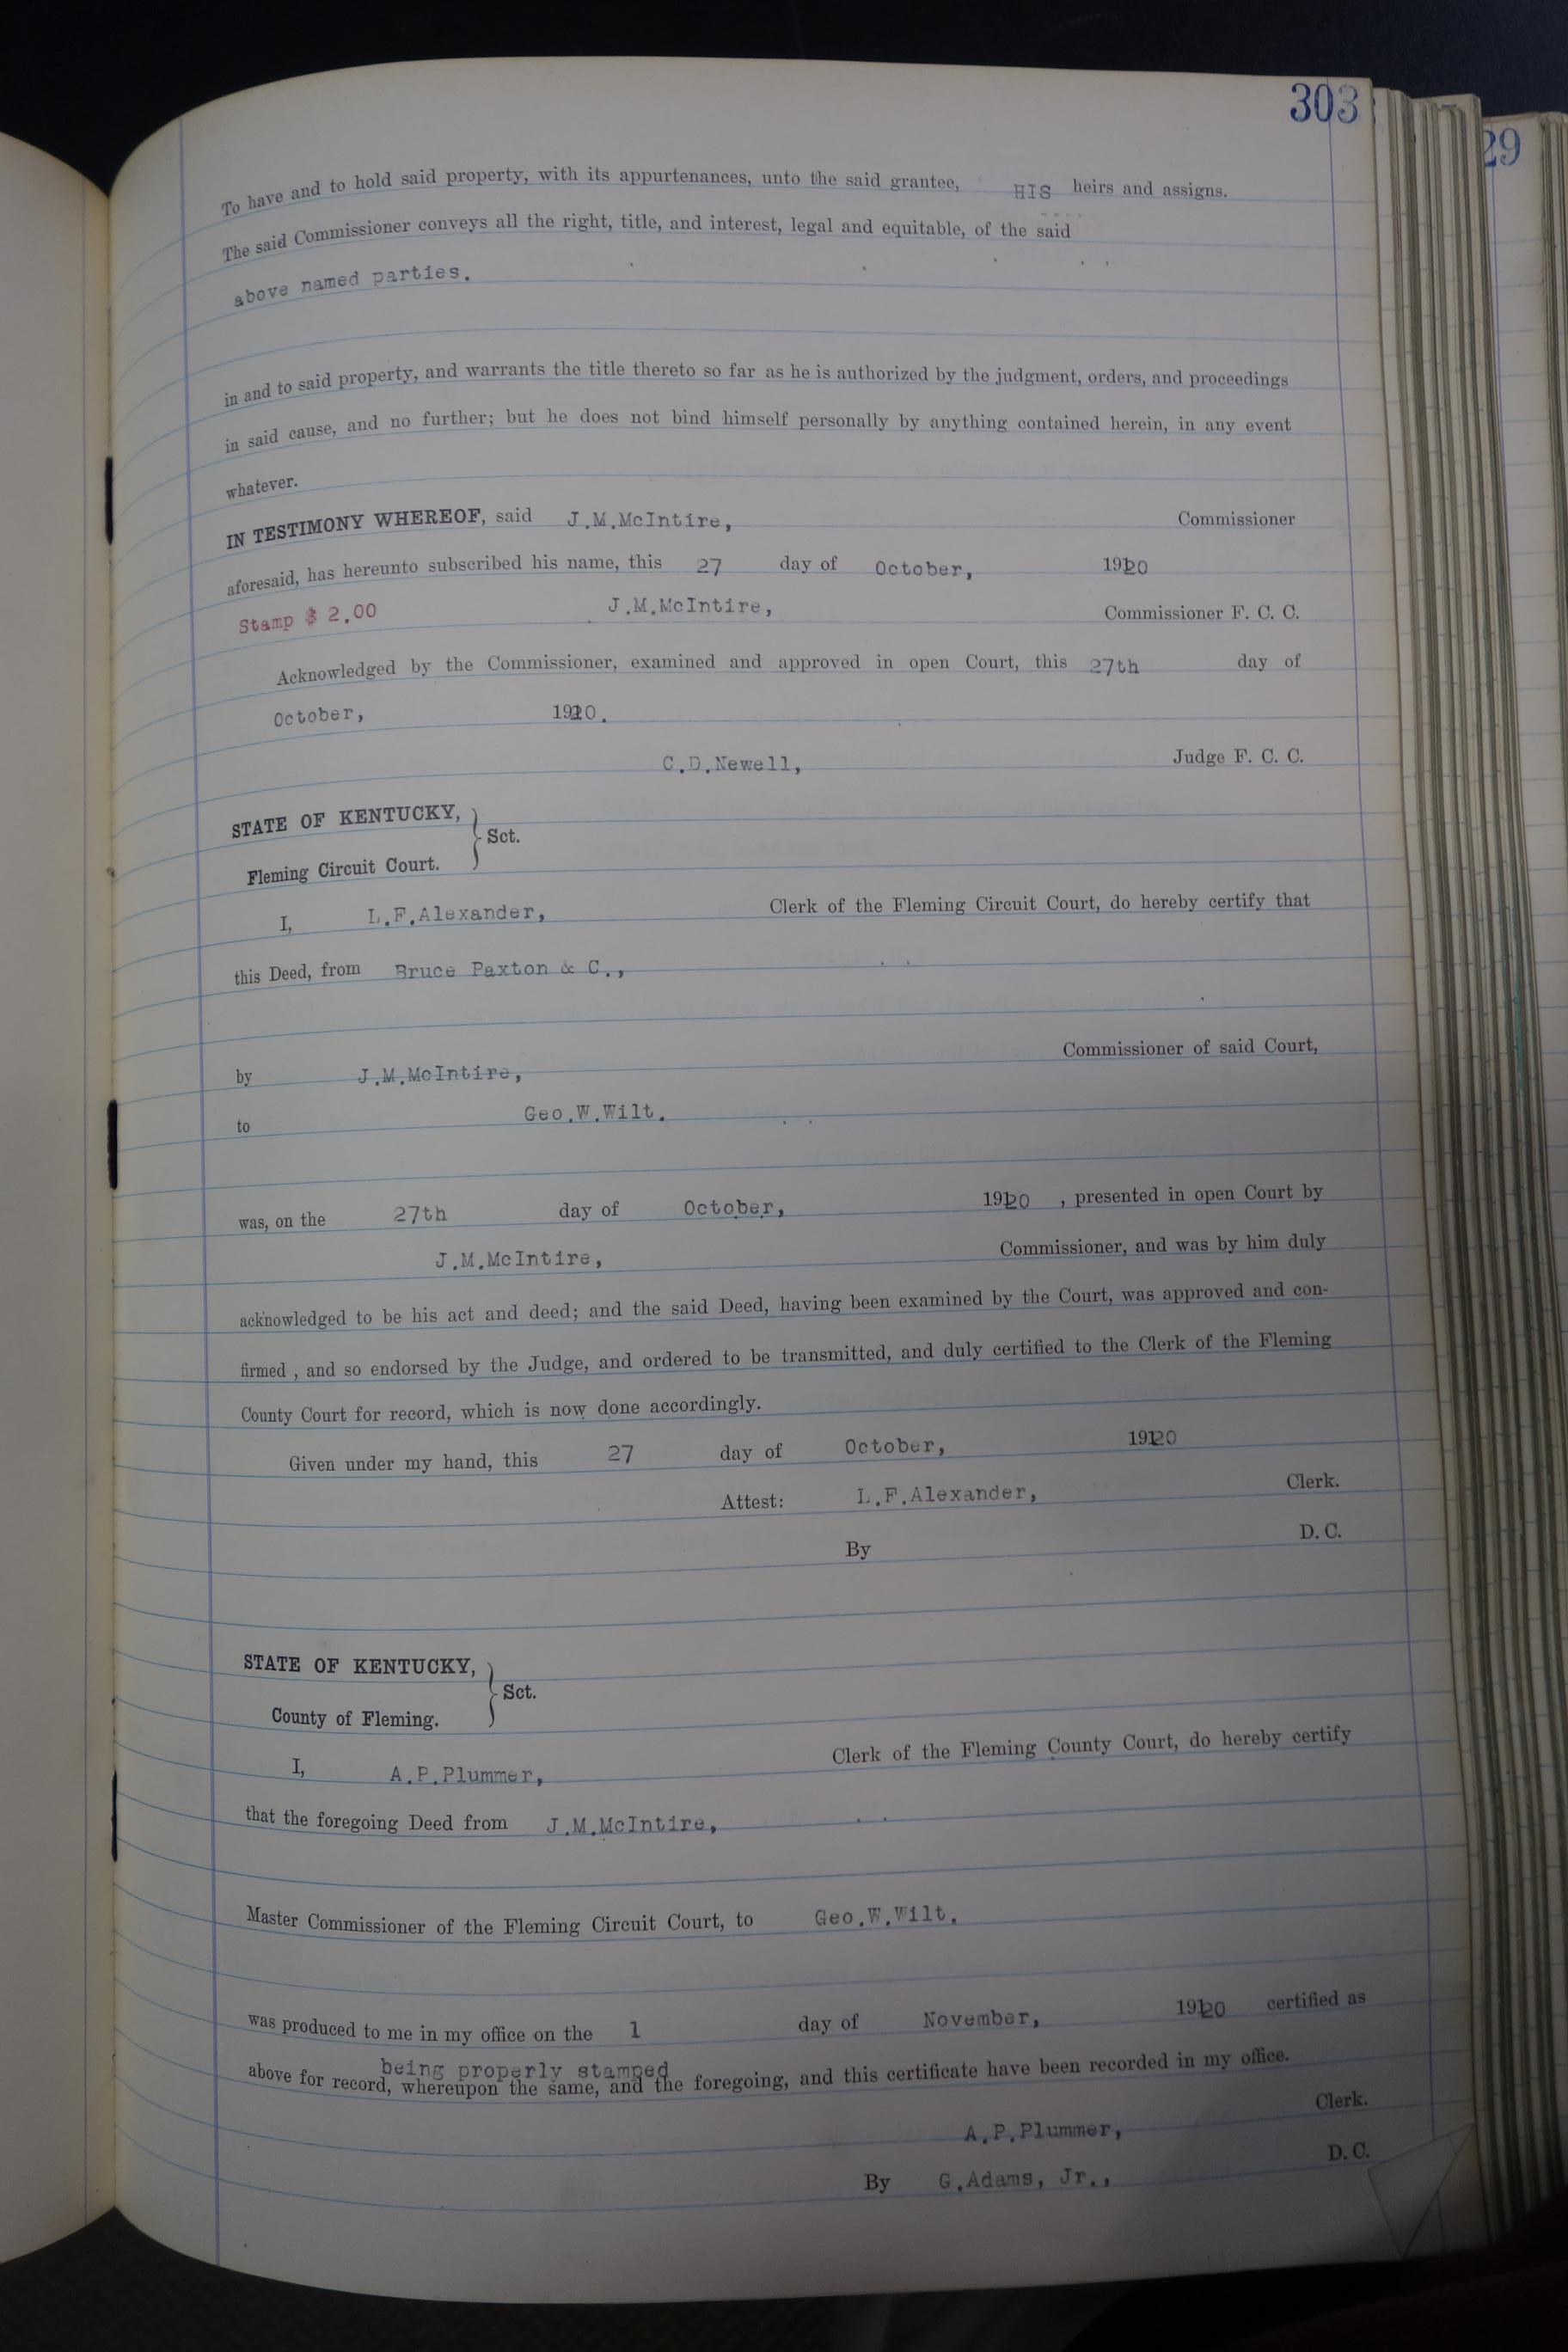 303
29
To have and to hold said property, with its appurtenances, unto the said grantee, HIS heirs and assigns.
The said Commissioner conveys all the right, title, and interest, legal and equitable, of the said
above named parties.
in and to said property, and warrants the title thereto so far as he is authorized by the judgment, orders, and proceedings
in said cause, and no further; but he does not bind himself personally by anything contained herein, in any event
whatever.
IN TESTIMONY WHEREOF, said J.M.McIntire, Commissioner
aforesaid, has hereunto subscribed his name, this 27 day of October, 1920
Stamp $ 2.00 J.M.McIntire, Commissioner F. C. C.
Acknowledged by the Commissioner, examined and approved in open Court, this 27th day of
October, 1920.
C.D.Newell, Judge F. C. C.
STATE OF KENTUCKY,
Sct.
Fleming Circuit Court.
I, L.F.Alexander, Clerk of the Fleming Circuit Court, do hereby certify that
this Deed, from Bruce Paxton & C.,
Commissioner of said Court,
by J.M.McIntire,
to Geo.W.Wilt.
was, on the 27th day of October, 1920 , presented in open Court by
J.M.McIntire, Commissioner, and was by him duly
acknowledged to be his act and deed; and the said Deed, having been examined by the Court, was approved and con-
firmed , and so endorsed by the Judge, and ordered to be transmitted, and duly certified to the Clerk of the Fleming
County Court for record, which is now done accordingly.
Given under my hand, this 27 day of October, 1920
Attest: L.F.Alexander, Clerk.
By D. C.
STATE OF KENTUCKY,
Sct.
County of Fleming.
I, A.P.Plummer, Clerk of the Fleming County Court, do hereby certify
that the foregoing Deed from J.M.McIntire,
Master Commissioner of the Fleming Circuit Court, to Geo.W.Wilt.
was produced to me in my office on the 1 day of November, 1920 certified as
being properly stamped
above for record, whereupon the same, and the foregoing, and this certificate have been recorded in my office.
A.P.Plummer, Clerk.
By G.Adams, Jr., D. C.